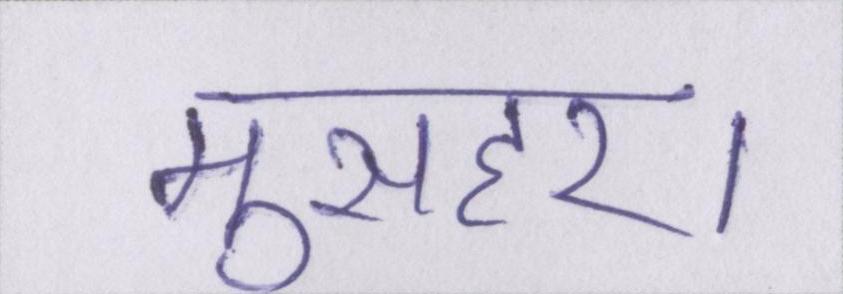 मुसहर।